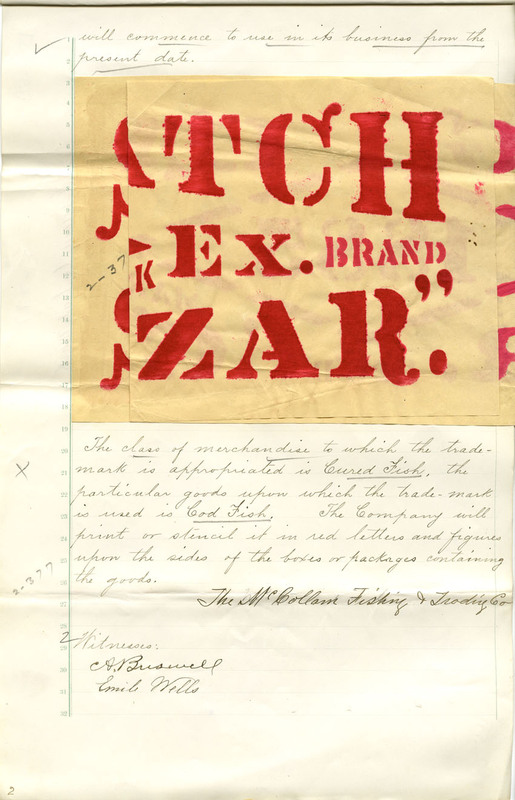 will commence to use in its business from the
present date.
ATCH
K Ex. BRAND
ZAR."
2-37
The class of merchandise to which the trade-
mark is appropriated is Cured Fish, the
particular goods upon which the trade-mark
is used is Cod Fish. The Company will
print or stencil it in red letters and figures
upon the sides of the boxes or packages containing
the goods.
2-377
The McCollam Fishing & Trading Co
2 Witnesses:
Emile Wells
1
2
3
4
5
6
7
8
9
10
11
12
13
14
15
16
17
18
19
20
21
22
23
24
25
26
27
28
29
30
31
32
2